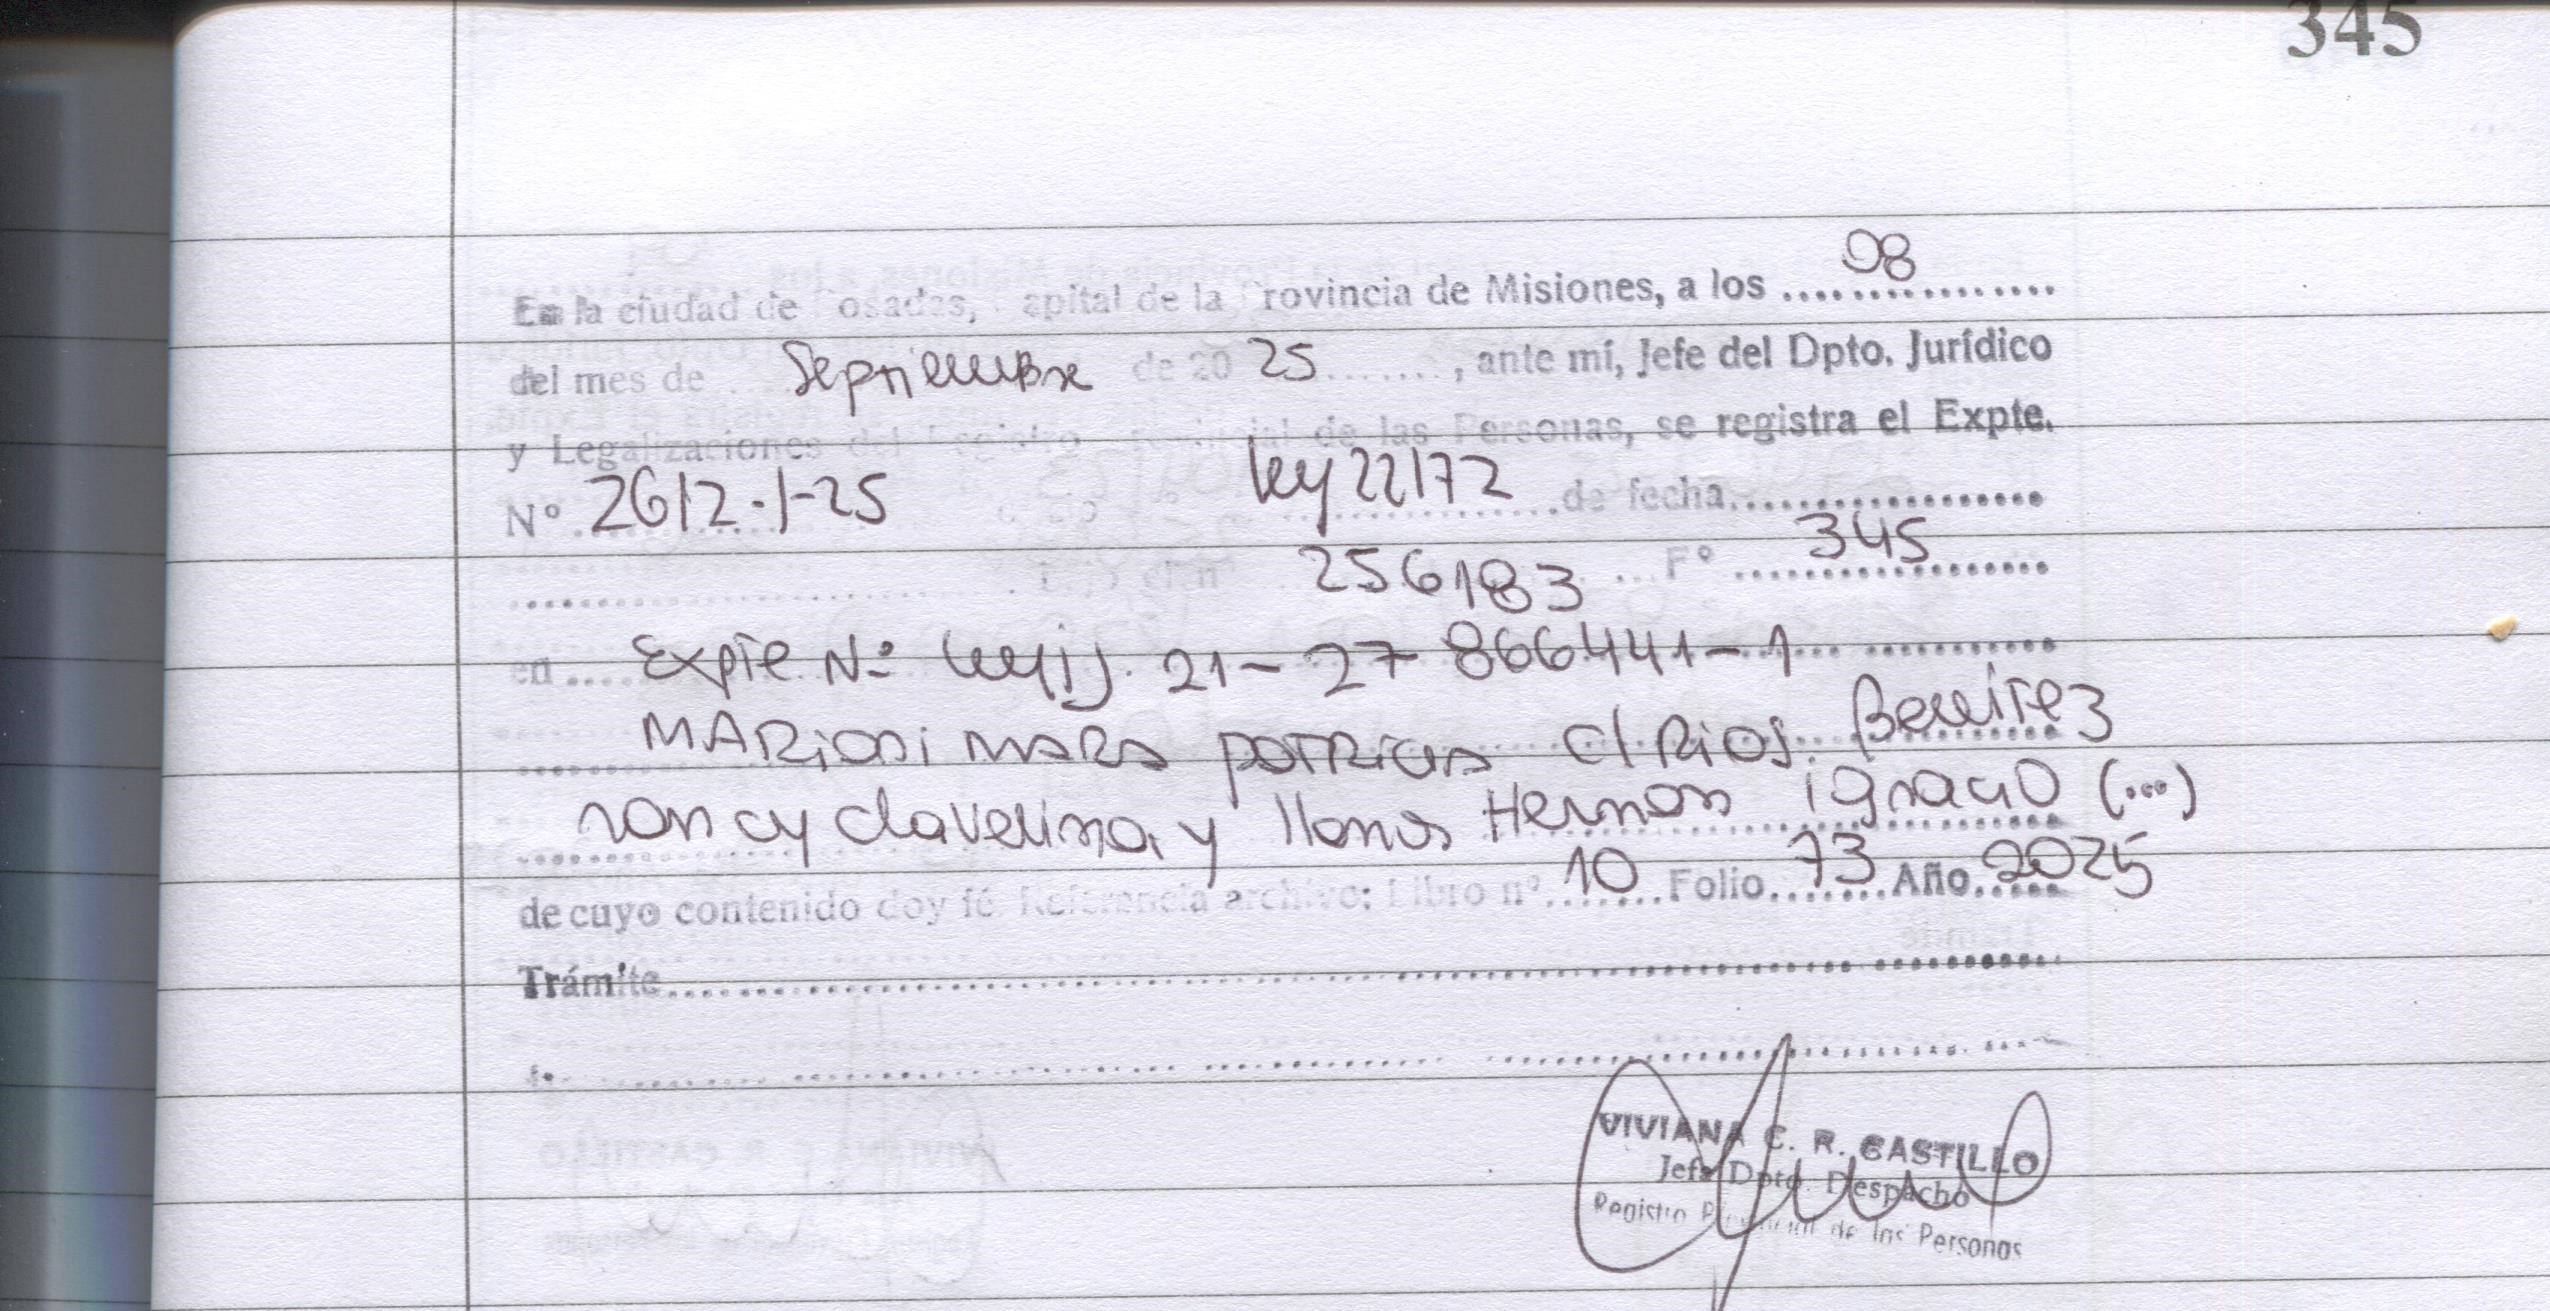 345
En la ciudad de Posadas, Capital de la Provincia de Misiones, a los 08
del mes de Septiembre de 20 25, ante mí, Jefe del Dpto. Jurídico
y Legalizaciones del Registro Provincial de las Personas, se registra el Expte.
Nº 2612-1-25 ley 22172 de fecha
256183 Fº 345
en Expte Nº 21-27866441-1
MARiani MARA PATRiciA c/ Rios Benitez
nancy clavelina y llanos Hernan ignacio (...)
de cuyo contenido doy fé. Referencia archivo: Libro nº 10 Folio 73 Año 2025
Trámite
VIVIANA C. R. CASTILLO
Jefa Dpto. Despacho
Registro Provincial de las Personas